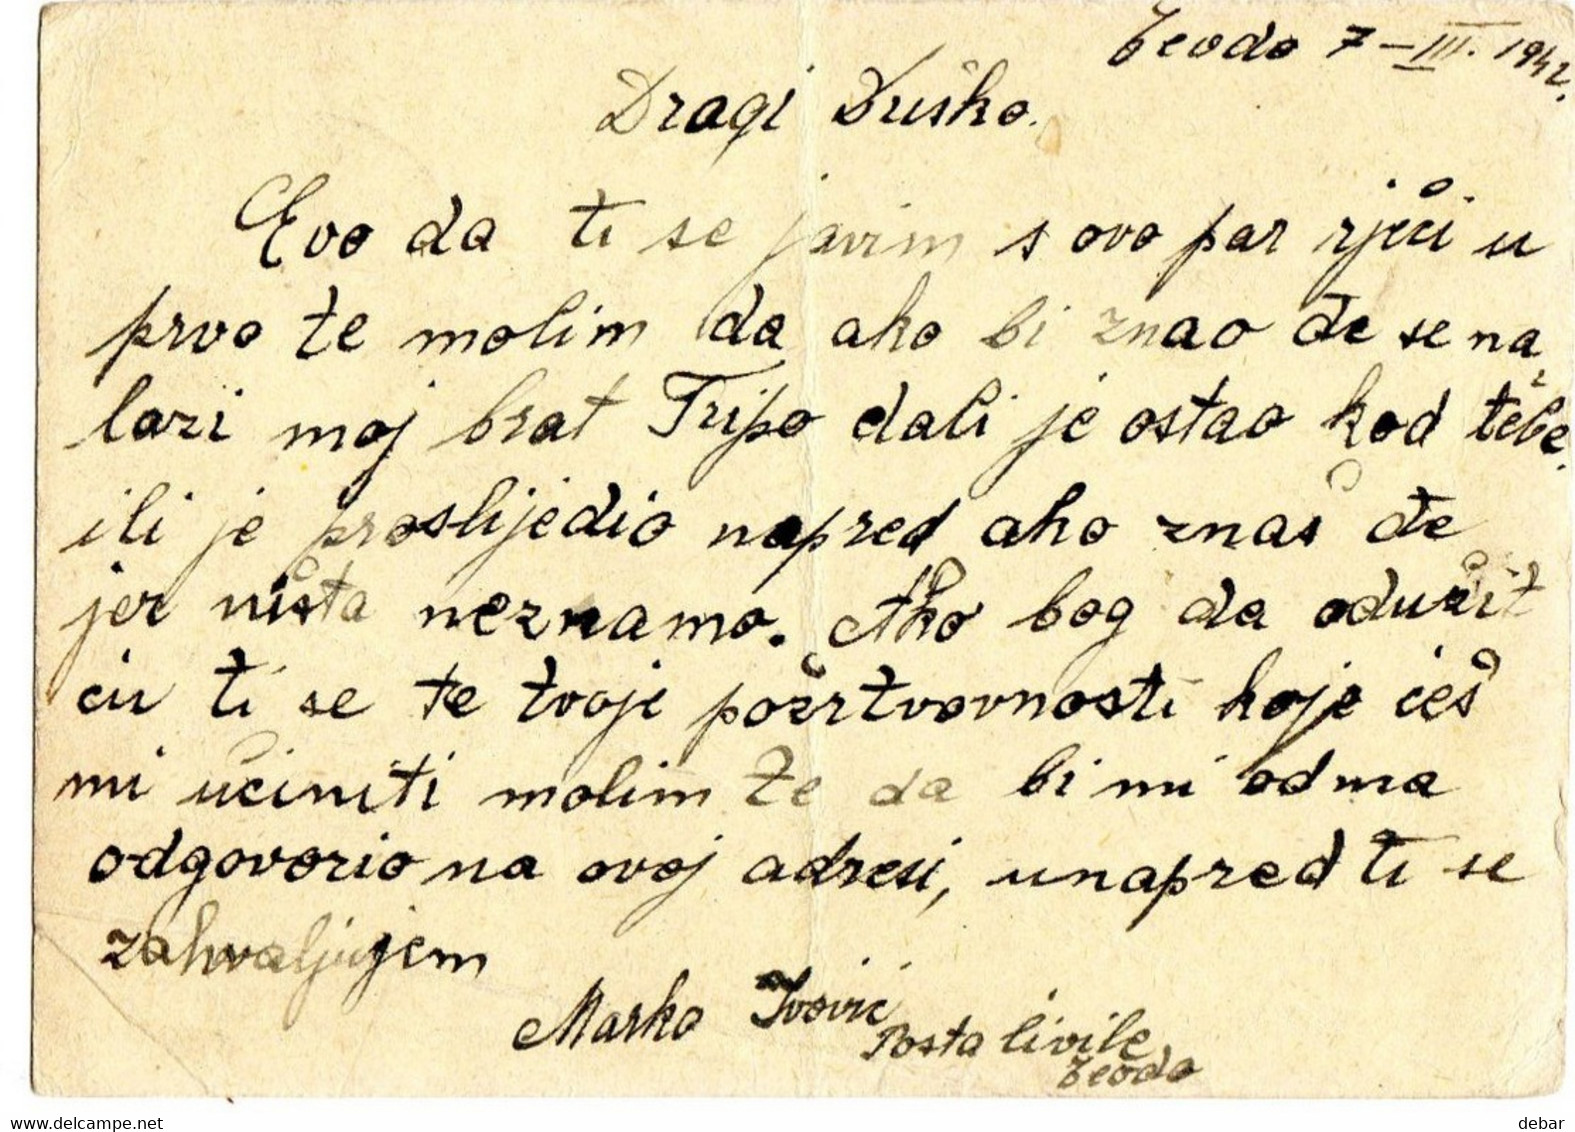 Teodo 7-III. 1942.
Dragi Duško.
Evo da ti se javim s ovo par rječi u
prvo te molim da ako bi znao đe se na,
lazi moj brat Tripo dali je ostao kod tebe.
ili je proslijedio napred ako znaš đe
jer ništa neznamo. Ako bog da odužit
ću ti se te tvoje požrtvovnosti koje ćeš
mi učiniti molim te da bi mi odma
odgovorio na ovoj adresi, unapred ti se
zahvaljujem
Marko Ivović
Posta Civile
Teodo
www.delcampe.net
debar